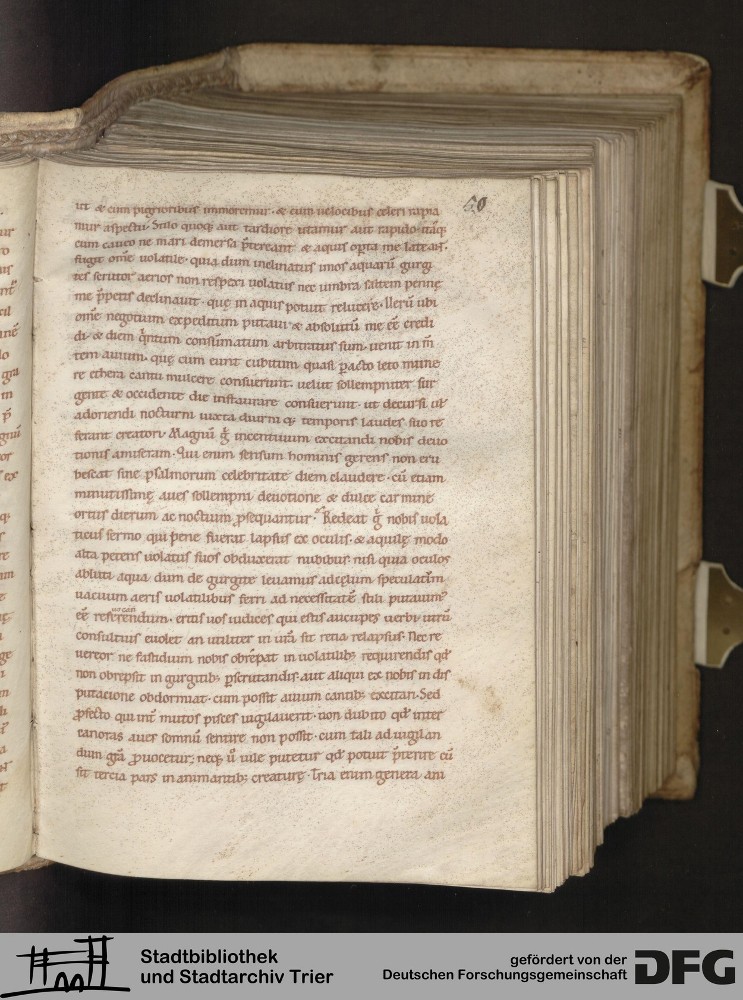 50
ut & cum pigrioribus immoremur · & cum uelocibus celeri rapia
mur aspectu. Stilo quoq; aut tardiore utamur aut rapido. itaq;
cum caueo ne mari demersa p̄tereant & aquis opta me lateant ·
fugit om̄e uolatile · quia dum inclinatus imos aquarū gurgi
tes scrutor aerios non respexi uolatus nec umbra saltem pennę
me p̄petis declinauit · quę in aquis potuit relucere · Uerū ubi
om̄e negotium expeditum putaui · & absolutū me eē credi
di · & diem q̊intum consūmatum arbitratus sum · uenit in m̄
tem auium · quę cum eunt cubitum quasi pacto leto mune
re ethera cantu mulcere consuerunt. uelut sollempniter sur
gente & occidente die instaurare consuerunt · ut decursi ul̄
adoriendi nocturni iuxta diurni q; temporis laudes suo re
ferant creatori · Magnū g̊ incentiuum excitandi nobis deuo
tionis amiseram · Qui enim sensum hominis gerens non eru
bescat sine psalmorum celebritate diem claudere · cū etiam
minutissimę aues sollempni deuotione & dulce carmine
ortus dierum ac noctium psequantur · Redeat g̊ nobis uola
ticus sermo qui pene fuerat lapsus ex oculis · & aquilę modo
alta petens uolatus suos obduxerat nubibus nisi quia oculos
abluti aqua dum de gurgite leuamus ad cęlum speculatim
uacuum aeris uolatilibus ferri ad necessitatē stili putauim᷒
eē referendum · eritis uos iudices qui estis aucupes uerbi utrū
consultius euolet an utiliter in ur̄a sit retia relapsus · Nec re
uereor ne fastidium nobis obrepat in uolatilib; requirendis qd̄
non obrepsit in gurgitib; pscrutandis · aut aliqui ex nobis in dis
putatione obdormiat · cum possit auium cantib; excitari · Sed
pfecto qui int̄ mutos pisces uigilauerit · non dubito qd̄ inter
canoras aues somnū sentire non possit · cum tali ad uigilan
dum gr̄a puocetur; neq; u̾ uile putetur qd̄ potuit p̄terire cū
sit tercia pars in animantib; creaturę · Tria enim genera ani
Stadtbibliothek
und Stadtarchiv Trier
gefördert von der
Deutschen Forschungsgemeinschaft
DFG